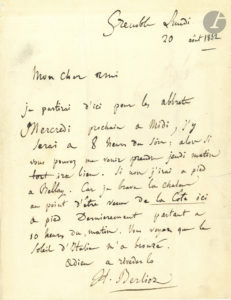 Grenoble Lundi
20 août 1832
Mon cher ami
je partirai d'ici pour les abbrets
Mercredi prochain à Midi, j'y
serai à 8 heures du soir; alors si
vous pouvez me venir prendre jeudi matin
si non j'irai à pied
à Car je brave la chaleur
au point d'être venu de la Côte ici
à pied Dernièrement partant à
10 heures du matin. Vous voyez que le
soleil d'Italie m'a bronzé.
Adieu a rivederlo
H. Berlioz